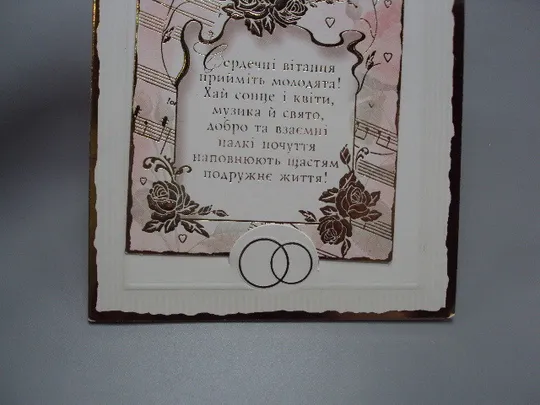 Сердечні вітання
прийміть молодята!
Хай сонце і квіти,
музика й свято,
добро та взаємні
палкі почуття
наповнюють щастям
подружнє життя!